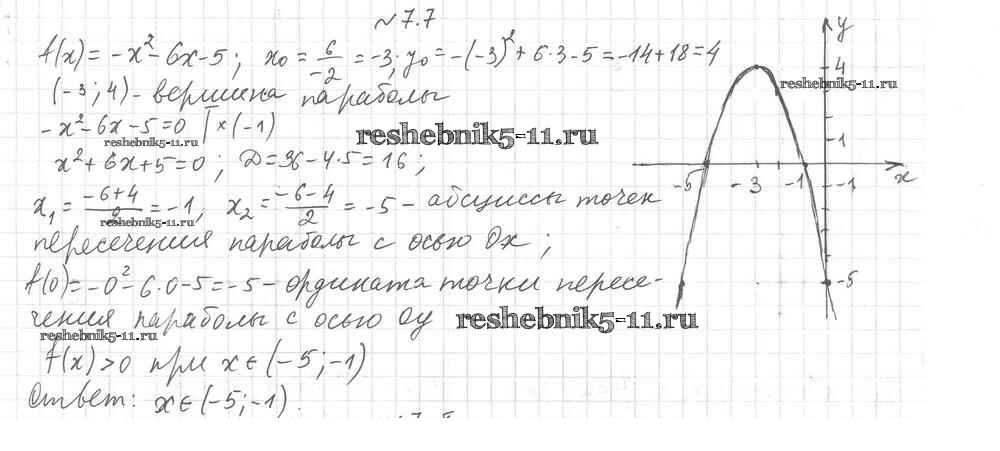 № 7.7
f(x) = -x² - 6x - 5 ; x₀ = 6/-2 = -3 ; y₀ = -(-3)² + 6·3 - 5 = -14 + 18 = 4
(-3 ; 4) - вершина параболы
-x² - 6x - 5 = 0 | × (-1)
reshebnik5-11.ru
x² + 6x + 5 = 0 ; D = 36 - 4·5 = 16 ;
reshebnik5-11.ru
x₁ = (-6+4)/2 = -1, x₂ = (-6-4)/2 = -5 - абсциссы точек
reshebnik5-11.ru
пересечения параболы с осью Ox ;
f(0) = -0² - 6·0 - 5 = -5 - ордината точки пересе-
чения параболы с осью Oy
reshebnik5-11.ru
reshebnik5-11.ru
f(x) > 0 при x ∈ (-5 ; -1)
Ответ: x ∈ (-5 ; -1).
y
4
reshebnik5-11.ru
1
-5 -3 -1 -1 x
-5